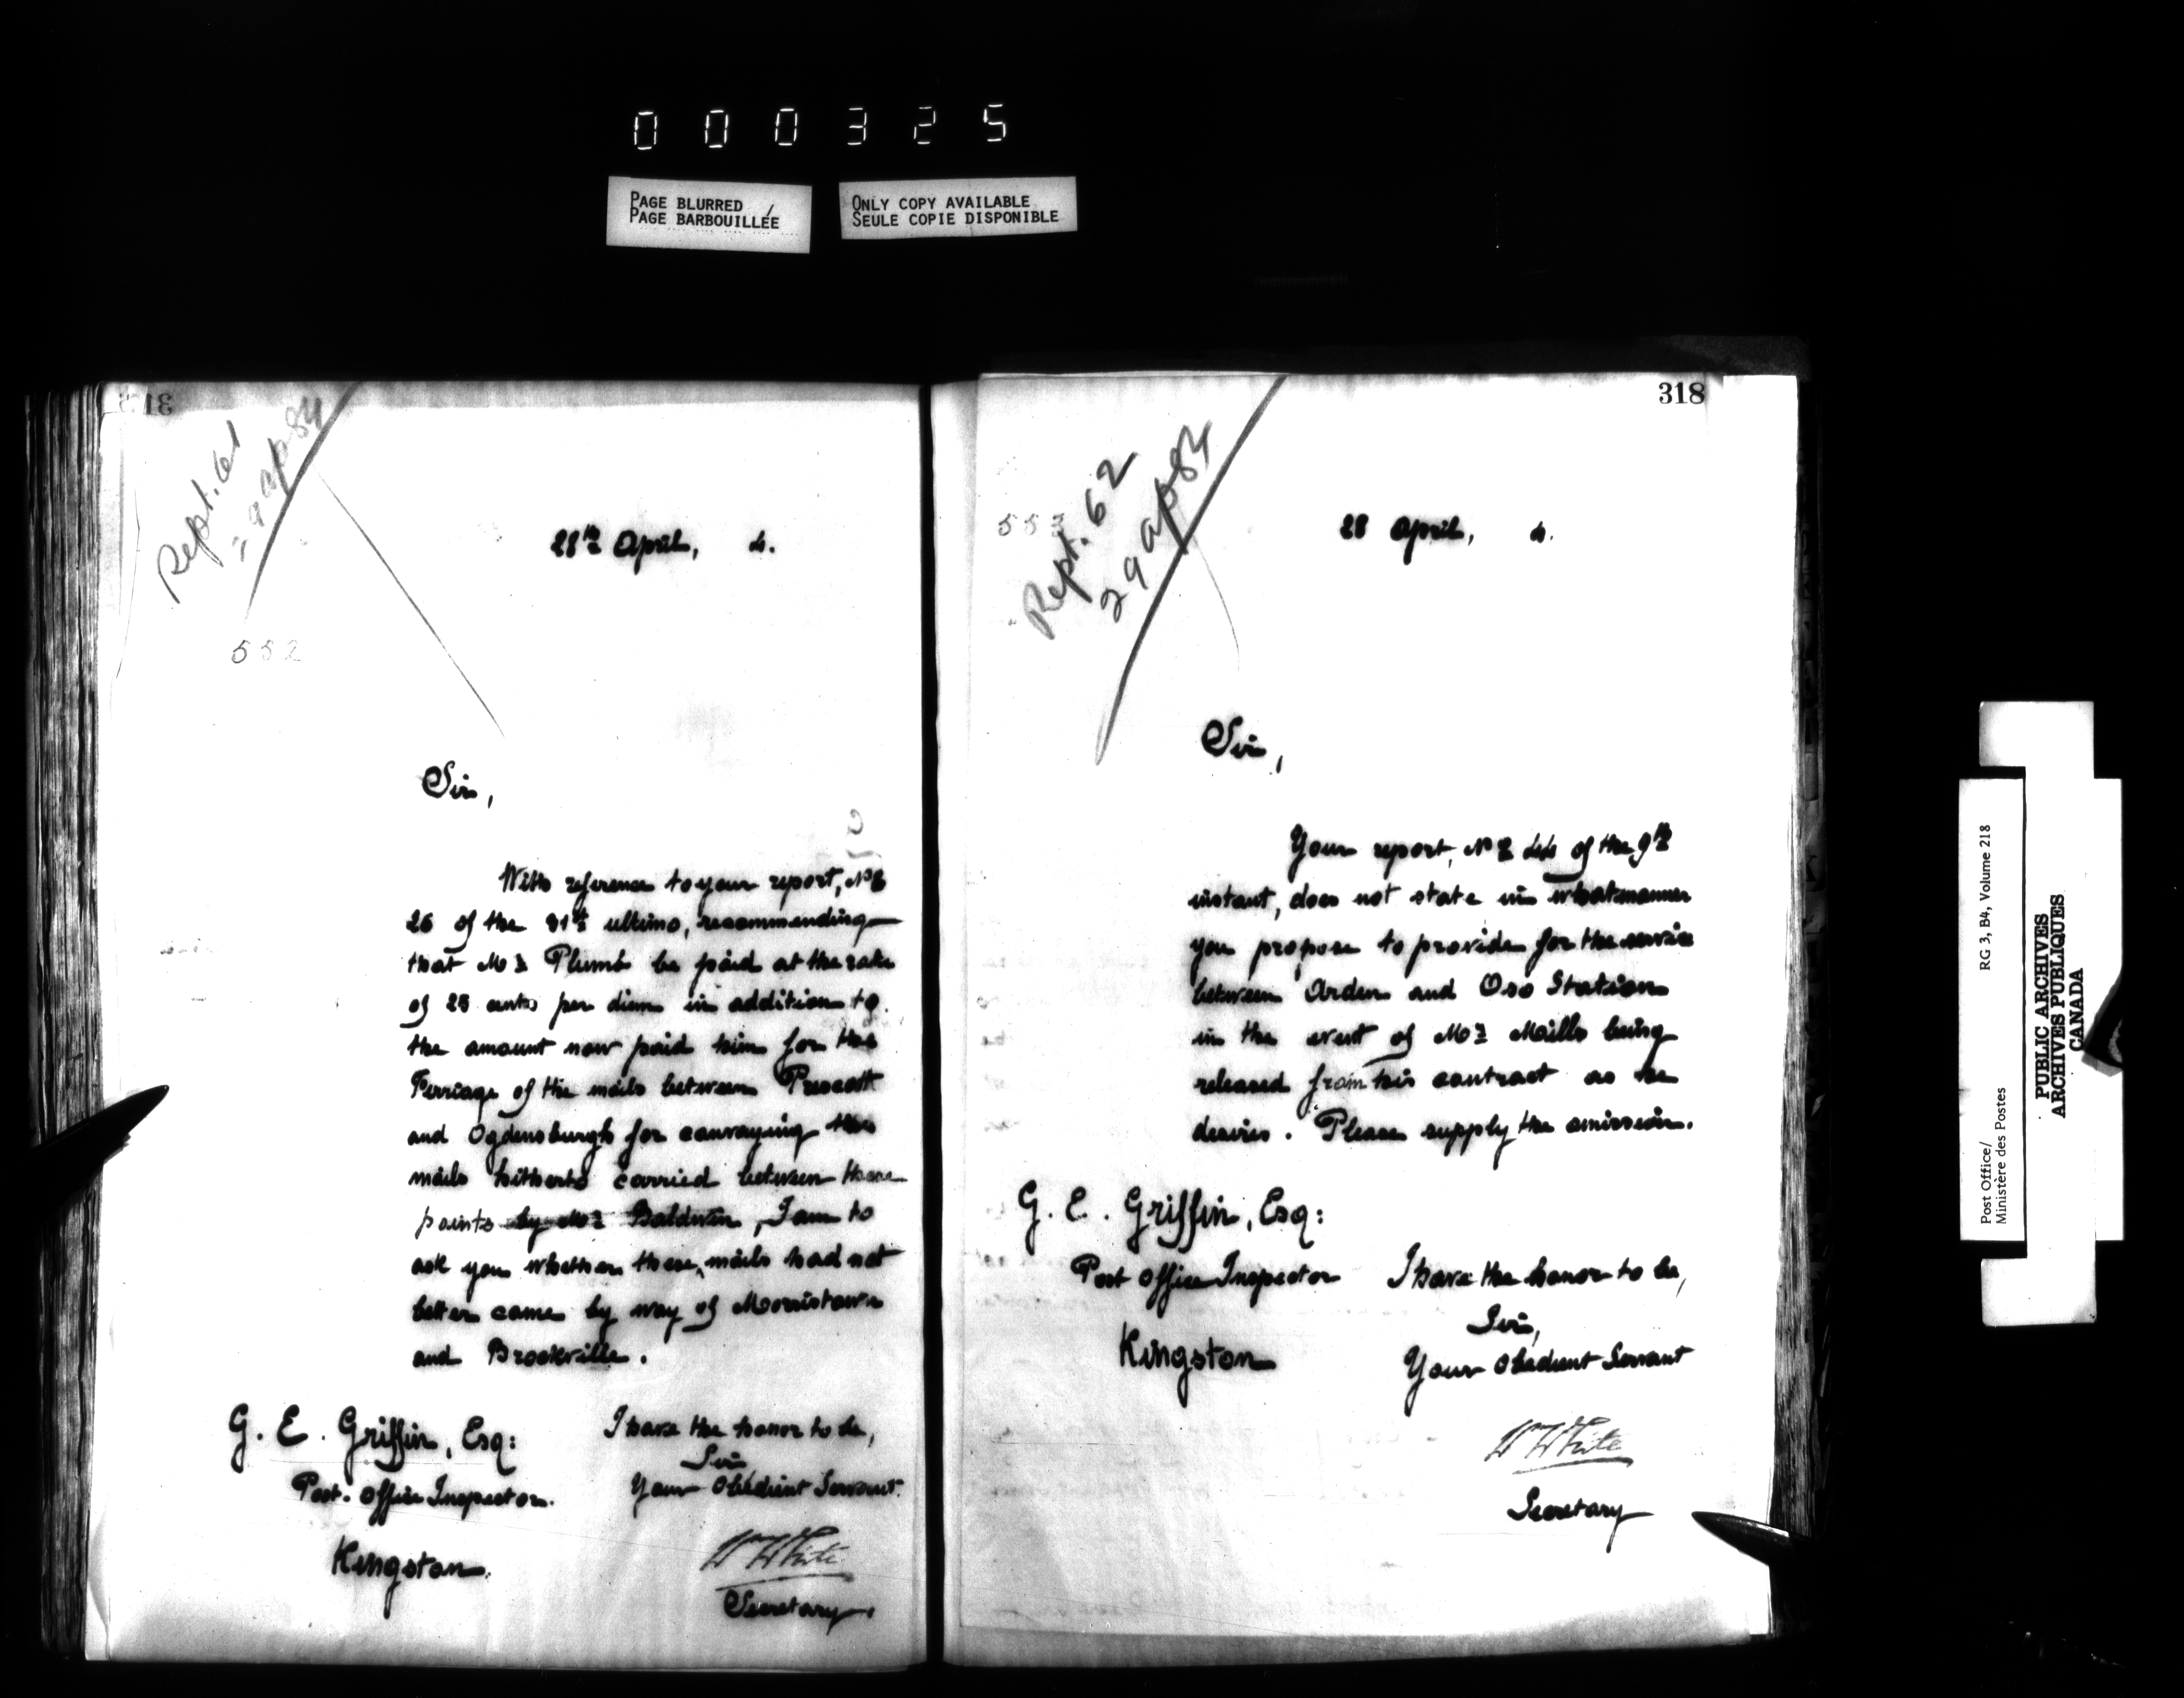 000325
PAGE BLURRED
PAGE BARBOUILLÉE
ONLY COPY AVAILABLE
SEULE COPIE DISPONIBLE
Rept. 61
29 ap 84
552
28th April, 4.
Sir,
With reference to your report, No
26 of the 31st ultimo, recommending
that Mr Plumb be paid at the rate
of 25 cents per diem in addition to
the amount now paid him for the
Ferriage of the mails between Prescott
and Ogdensburgh for conveying the
mails hitherto carried between these
points by Mr Baldwin, I am to
ask you whether these mails had not
better come by way of Morristown
and Brockville.
G. E. Griffin, Esq:
Post. Office Inspector.
Kingston.
I have the honor to be,
Sir
Your Obedient Servant.
W White
Secretary.
318
553
Rept. 62
29 ap 84
28 April, 4.
Sir,
Your report, No of the 9th
instant, does not state in what manner
you propose to provide for the service
between Arden and Oso Station
in the event of Mr Mills being
released from his contract as he
desires. Please supply the omission.
G. E. Griffin, Esq:
Post Office Inspector
Kingston
I have the honor to be,
Sir,
Your Obedient Servant
W White
Secretary
Post Office/
Ministère des Postes
RG 3, B4, Volume 218
PUBLIC ARCHIVES
ARCHIVES PUBLIQUES
CANADA